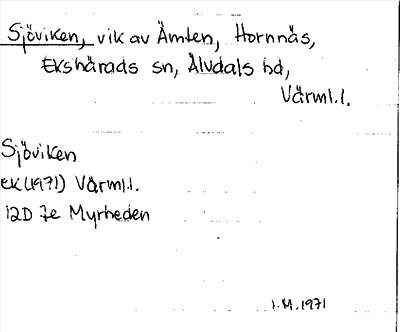 Sjöviken, vik av Ämten, Hornnäs,
Ekshärads sn, Älvdals hd,
Värml.l.
Sjöviken
ek (1971) Värml.l.
12D 7e Myrheden
I.M. 1971